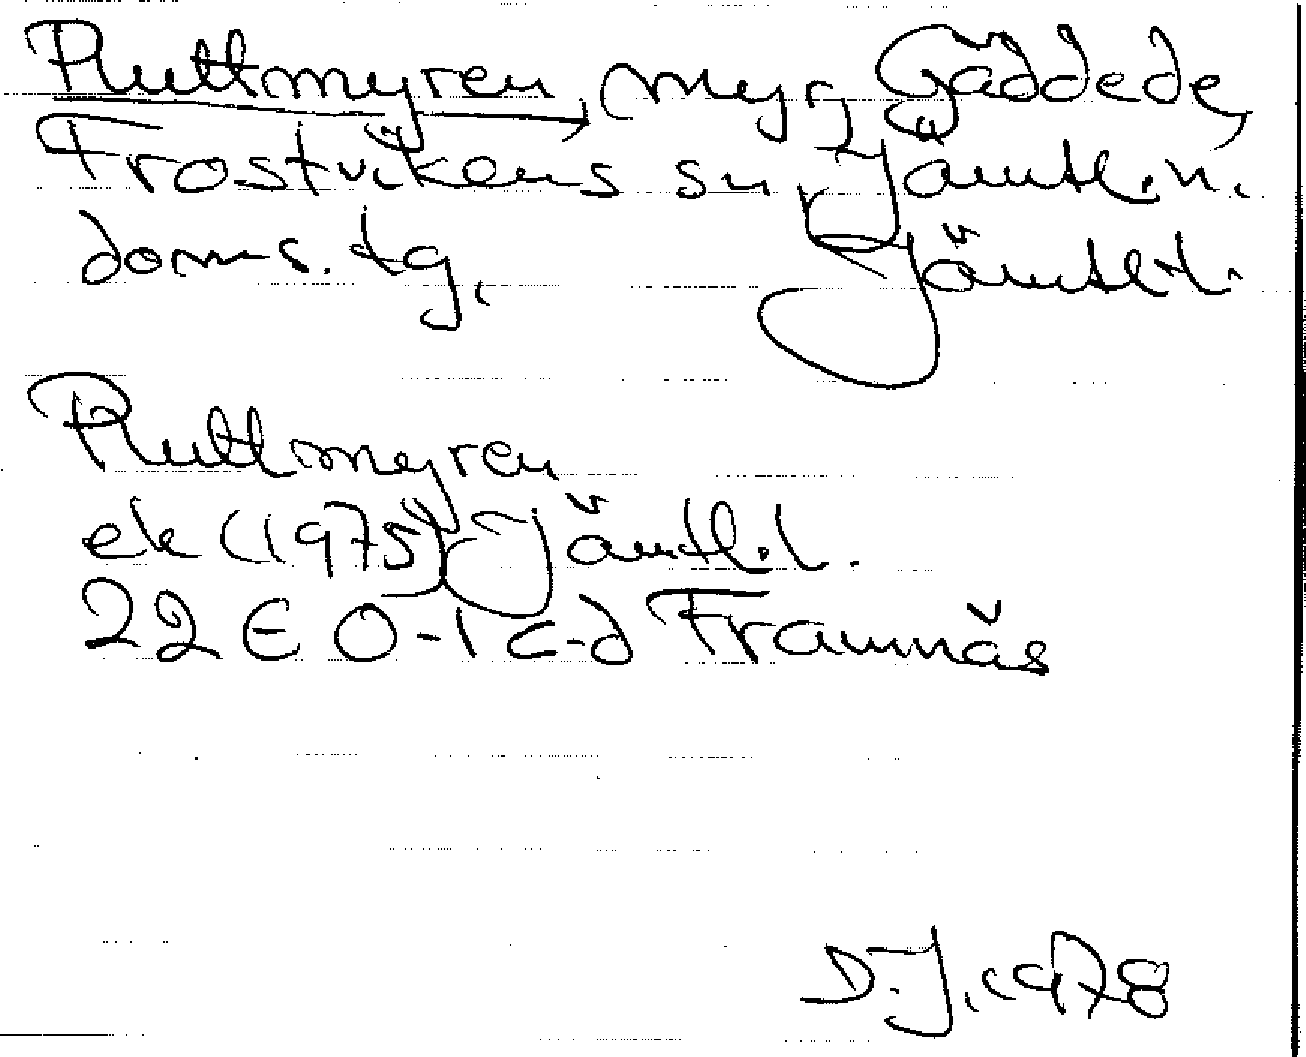 Ruttmyren, myr, Gäddede,
Frostvikens sn, Jämtl. n.
doms. tg, Jämtl. l.
Ruttmyren
ek (1975) Jämtl. l.
22E 0-1 c-d Framnäs
D. J. 1978